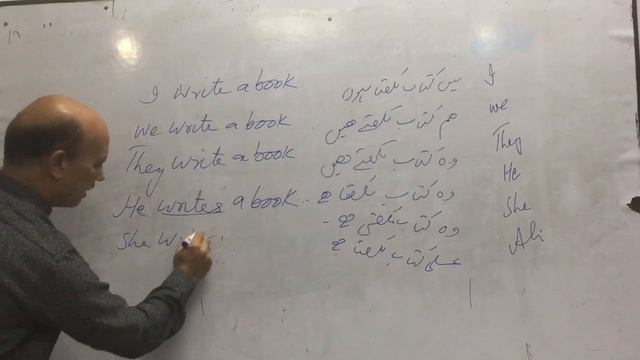 I write a book میں کتاب لکھتا ہوں I
we write a book ہم کتاب لکھتے ھیں we
They write a book وہ کتاب لکھتے ھیں They
He writes a book وہ کتاب لکھتا ہے He
She وہ کتاب لکھتی ہے She
علی کتاب لکھتا ہے Ali